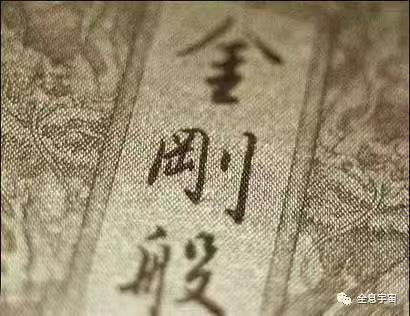 金
剛
般
全息宇宙